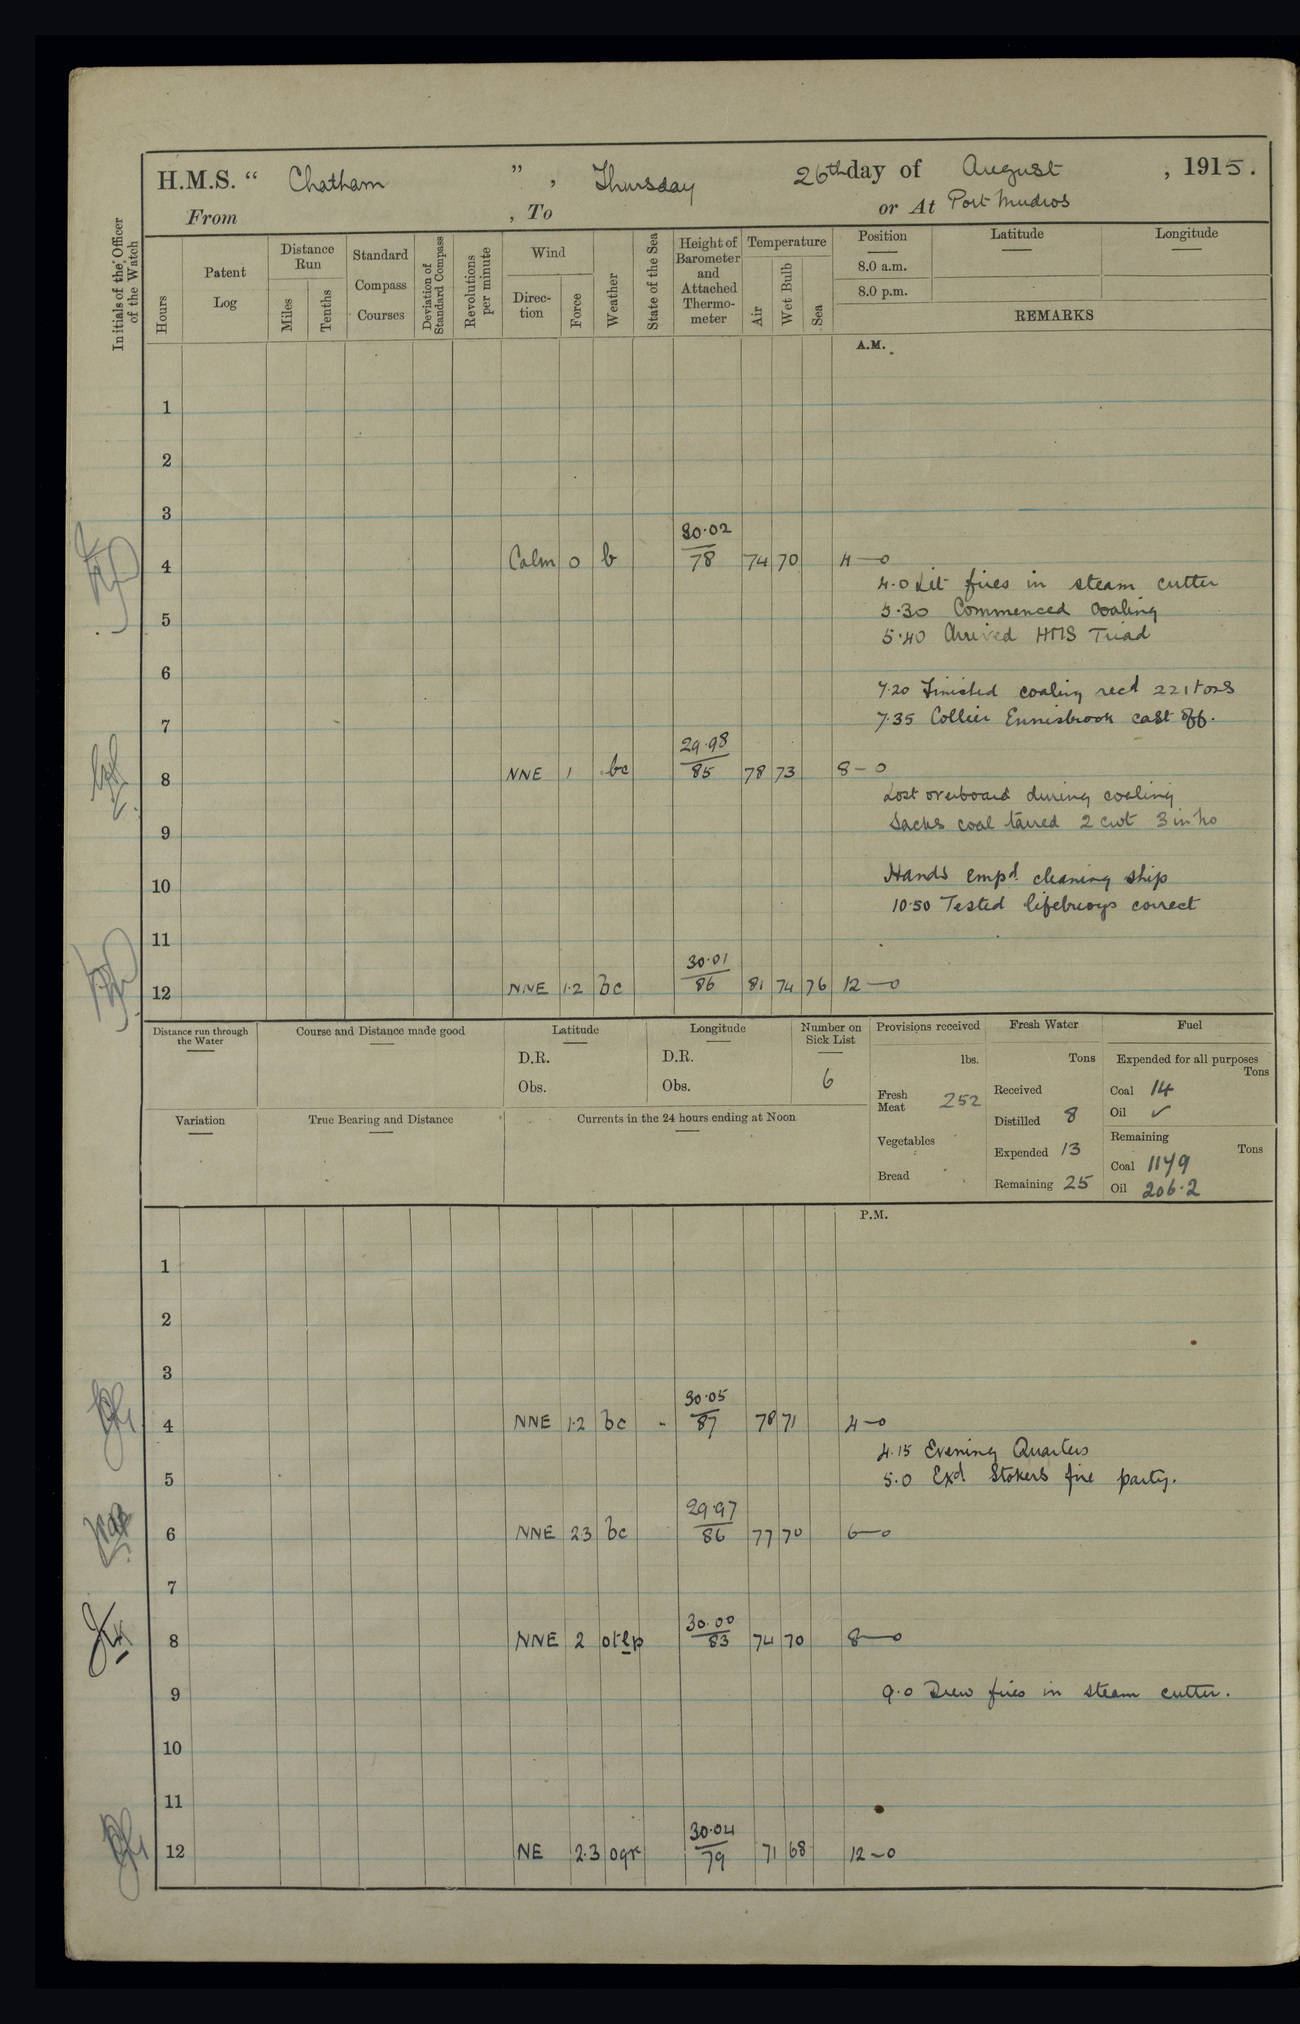 H.M.S. “ Chatham ” , Thursday 26th day of August , 1915.
From , To or At Port Mudros
Initials of the Officer of the Watch
Hours
Patent Log
Distance Run
Miles
Tenths
Standard Compass Courses
Deviation of Standard Compass
Revolutions per minute
Wind
Direc-tion
Force
Weather
State of the Sea
Height of Barometer and Attached Thermo-meter
Temperature
Air
Wet Bulb
Sea
Position
8.0 a.m.
8.0 p.m.
Latitude
Longitude
REMARKS
A.M.
1
2
3
30·02
4 Calm 0 b 78 74 70 4—0
4·0 Lit fires in steam cutter
5·30 Commenced Coaling
5 5·40 Arrived HMS Triad
6
7·20 Finished coaling recd 221 tons
7 7·35 Collier Ennisbrook cast off.
29·98
8 NNE 1 bc 85 78 73 8–0
Lost overboard during coaling
9 Sacks coal tarred 2 cwt 3 in No
Hands empd cleaning ship
10 10·50 Tested lifebuoys correct
11
30·01
12 NNE 1·2 bc 86 81 74 76 12—0
Distance run through the Water
Course and Distance made good
Latitude
D.R.
Obs.
Longitude
D.R.
Obs.
Number on Sick List
6
Provisions received
lbs.
Fresh Meat 252
Vegetables
Bread
Fresh Water
Tons
Received
Distilled 8
Expended 13
Remaining 25
Fuel
Expended for all purposes
Tons
Coal 14
Oil ✓
Remaining
Tons
Coal 1149
Oil 206·2
Variation
True Bearing and Distance
Currents in the 24 hours ending at Noon
P.M.
1
2
3
30·05
4 NNE 1·2 bc - 87 78 71 4—0
4.15 Evening Quarters
5 5·0 Exd Stokers fire party.
29·97
6 NNE 23 bc 86 77 70 6—0
7
30·00
8 NNE 2 otlp 83 74 70 8—0
9 9·0 Drew fires in steam cutter.
10
11
30·04
12 NE 2·3 oqr 79 71 68 12–0